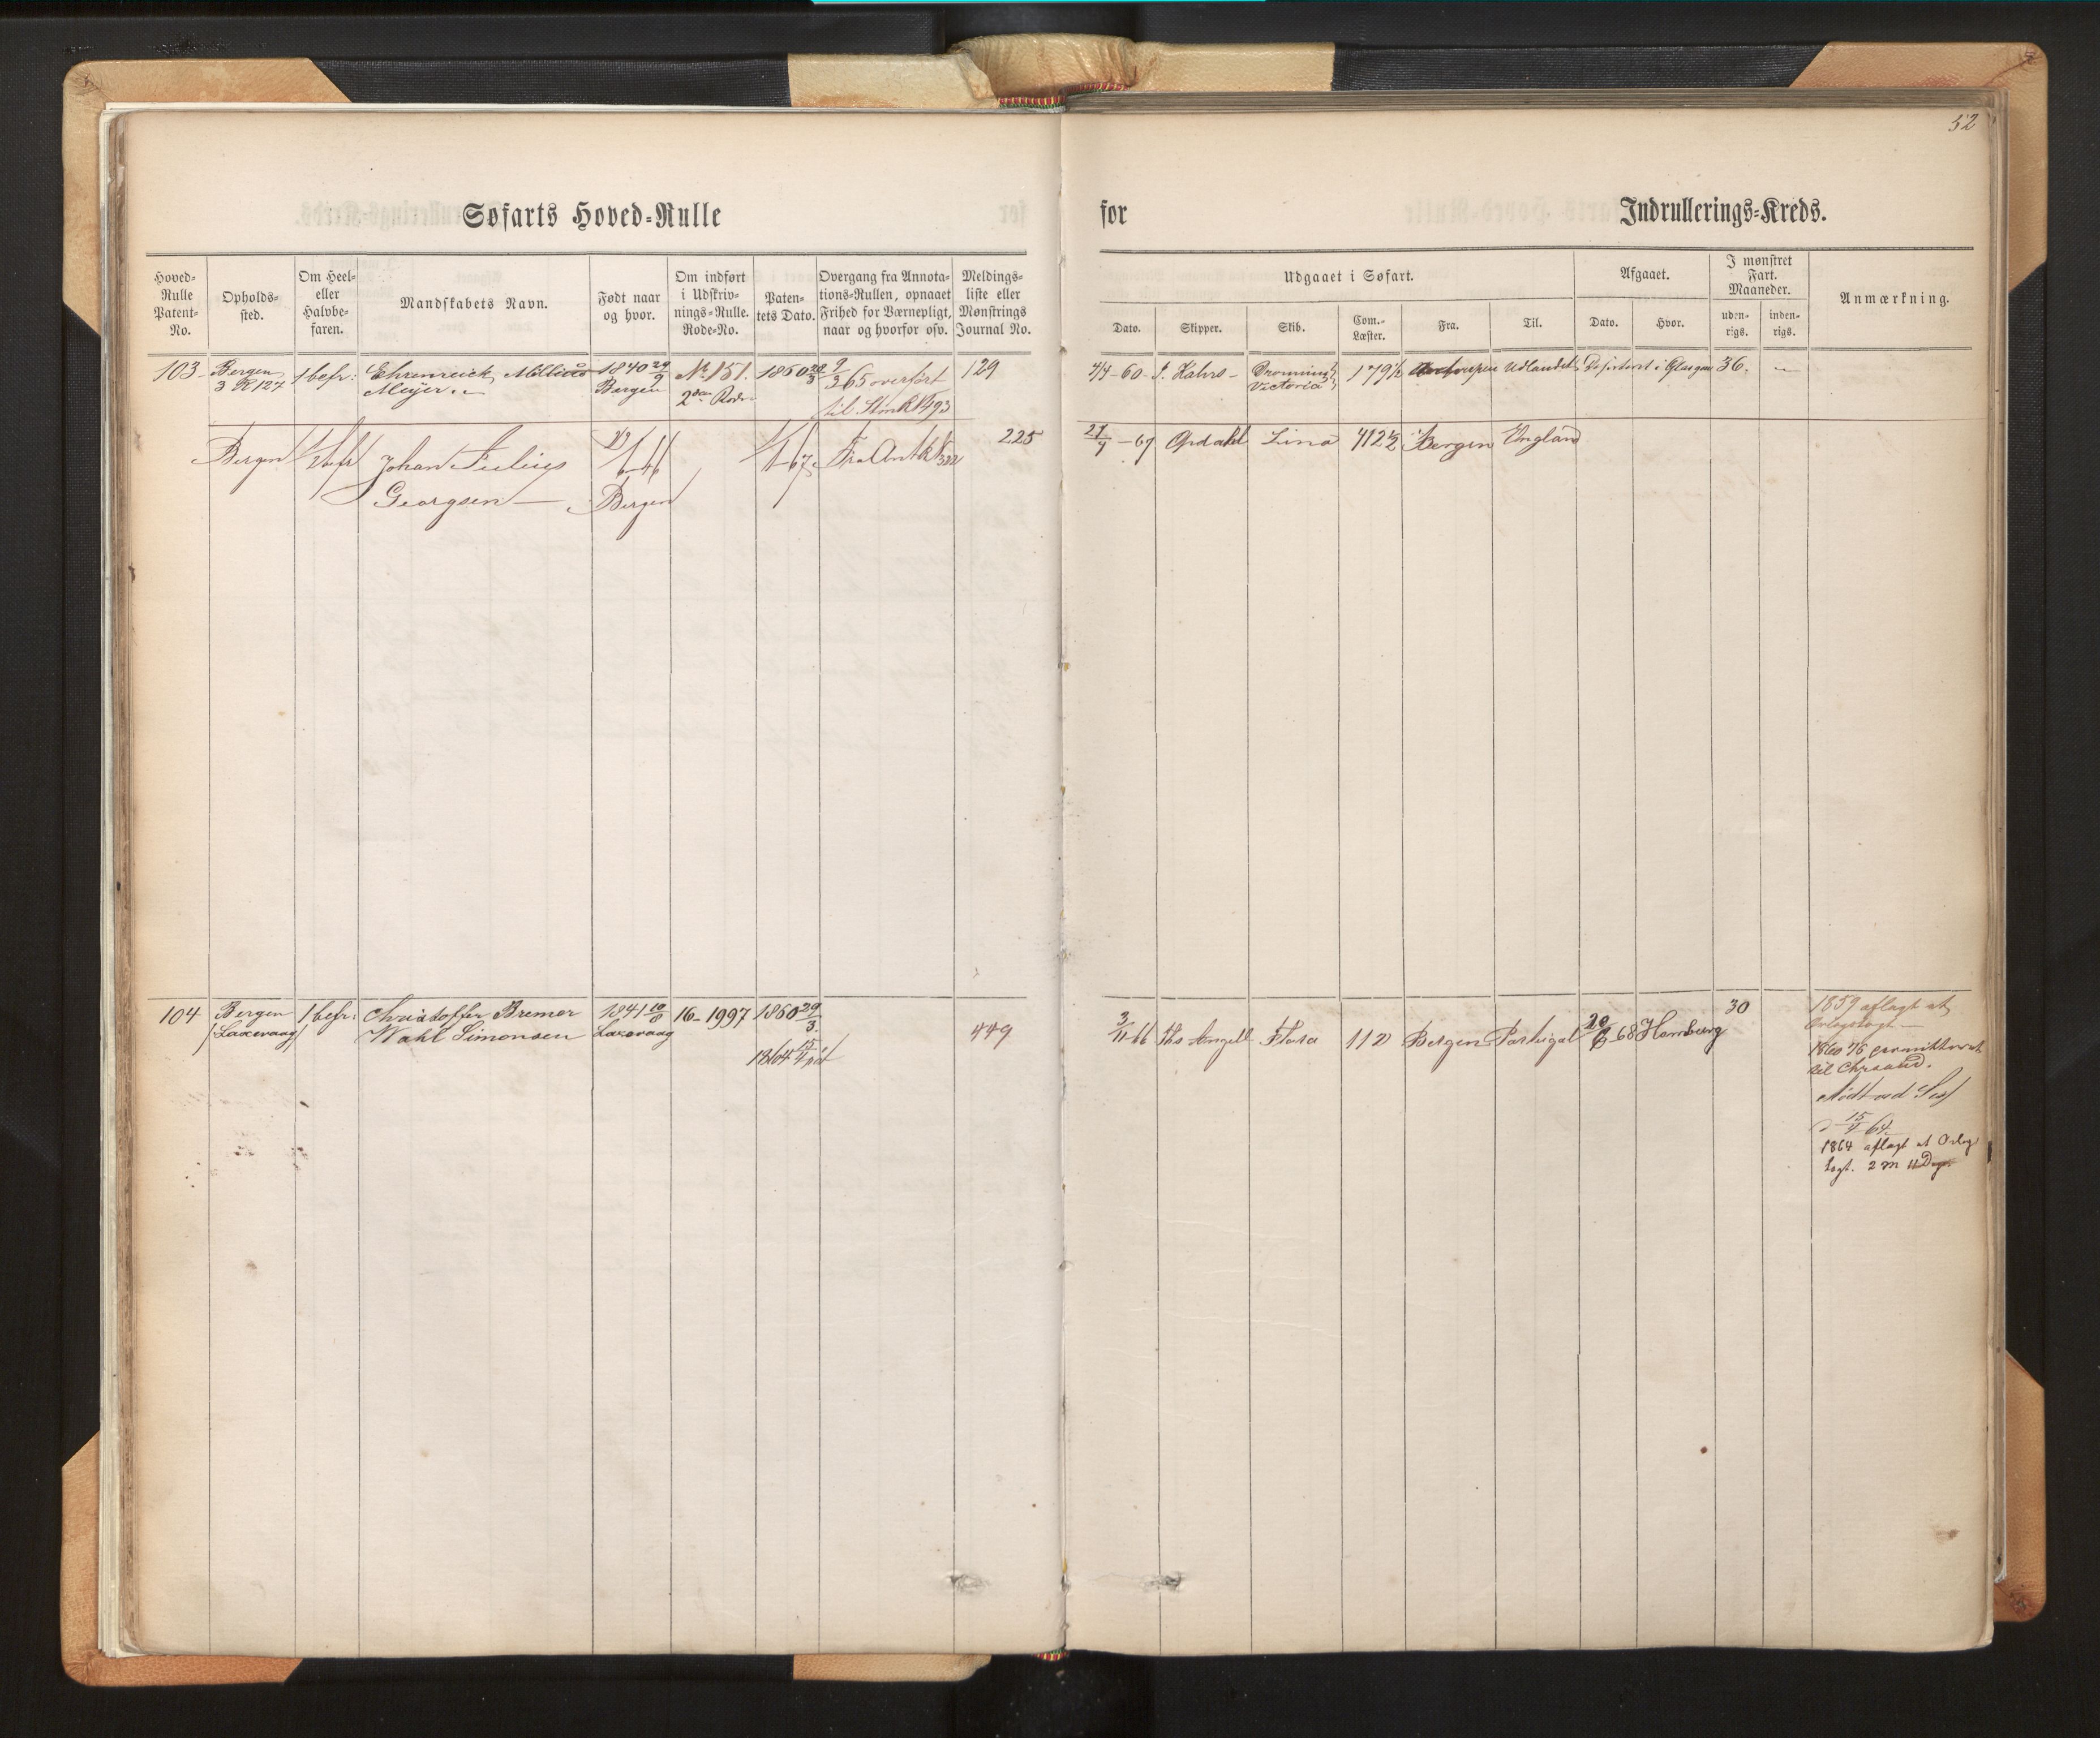 52
Søfarts Hoved-Rulle
for
Indrullerings-Kreds.
Hoved-
Rulle
Patent-
No.
Opholds-
sted.
Om Heel-
eller
Halvbe-
faren.
Mandskabets Navn.
Født naar
og hvor.
Om indført
i Udskriv-
nings-Rulle.
Rode-No.
Paten-
tets Dato.
Overgang fra Annota-
tions-Rullen, opnaaet
Frihed for Værnepligt,
naar og hvorfor osv.
Meldings-
liste eller
Mønstrings
Journal No.
Udgaaet i Søfart.
Dato.
Skipper.
Skib.
Com.-
Læster.
Fra.
Til.
Afgaaet.
Dato.
Hvor.
I mønstret
Fart.
Maaneder.
uden-
rigs.
inden-
rigs.
Anmærkning.
103
Bergen
3 R 127
1 befr:
Ehrenreich
Meijer
1840 29/9
Bergen
No 151.
2den Rode
1860 29/3
9/3 65 overført
til
129
4/4-60
Kahrs
Dronning
Victoria
179½
Udlandet
i Glasgow
36.
Bergen
½ befr
Johan Julius
Georgsen
Bergen
Fra
225
27/4-67
Opdahl
Lina
412½
Bergen
England
104
Bergen
(Laxevaag)
1 befr:
Christoffer Bremer
Wahl Simonsen
1841 10/8
Laxevaag
16-1997
1860 29/3.
1864 15/4
449
3/11-66
Angell
Flora
112
Bergen
Portugal
20/6-68
Hamburg
30
1859 aflagt et
Orlogstogt
1860
til Chrsand.
Mødt ved Sess
d 15/4 64.
1864 aflagt et Orlogs
togt. 2 M 11 Dage